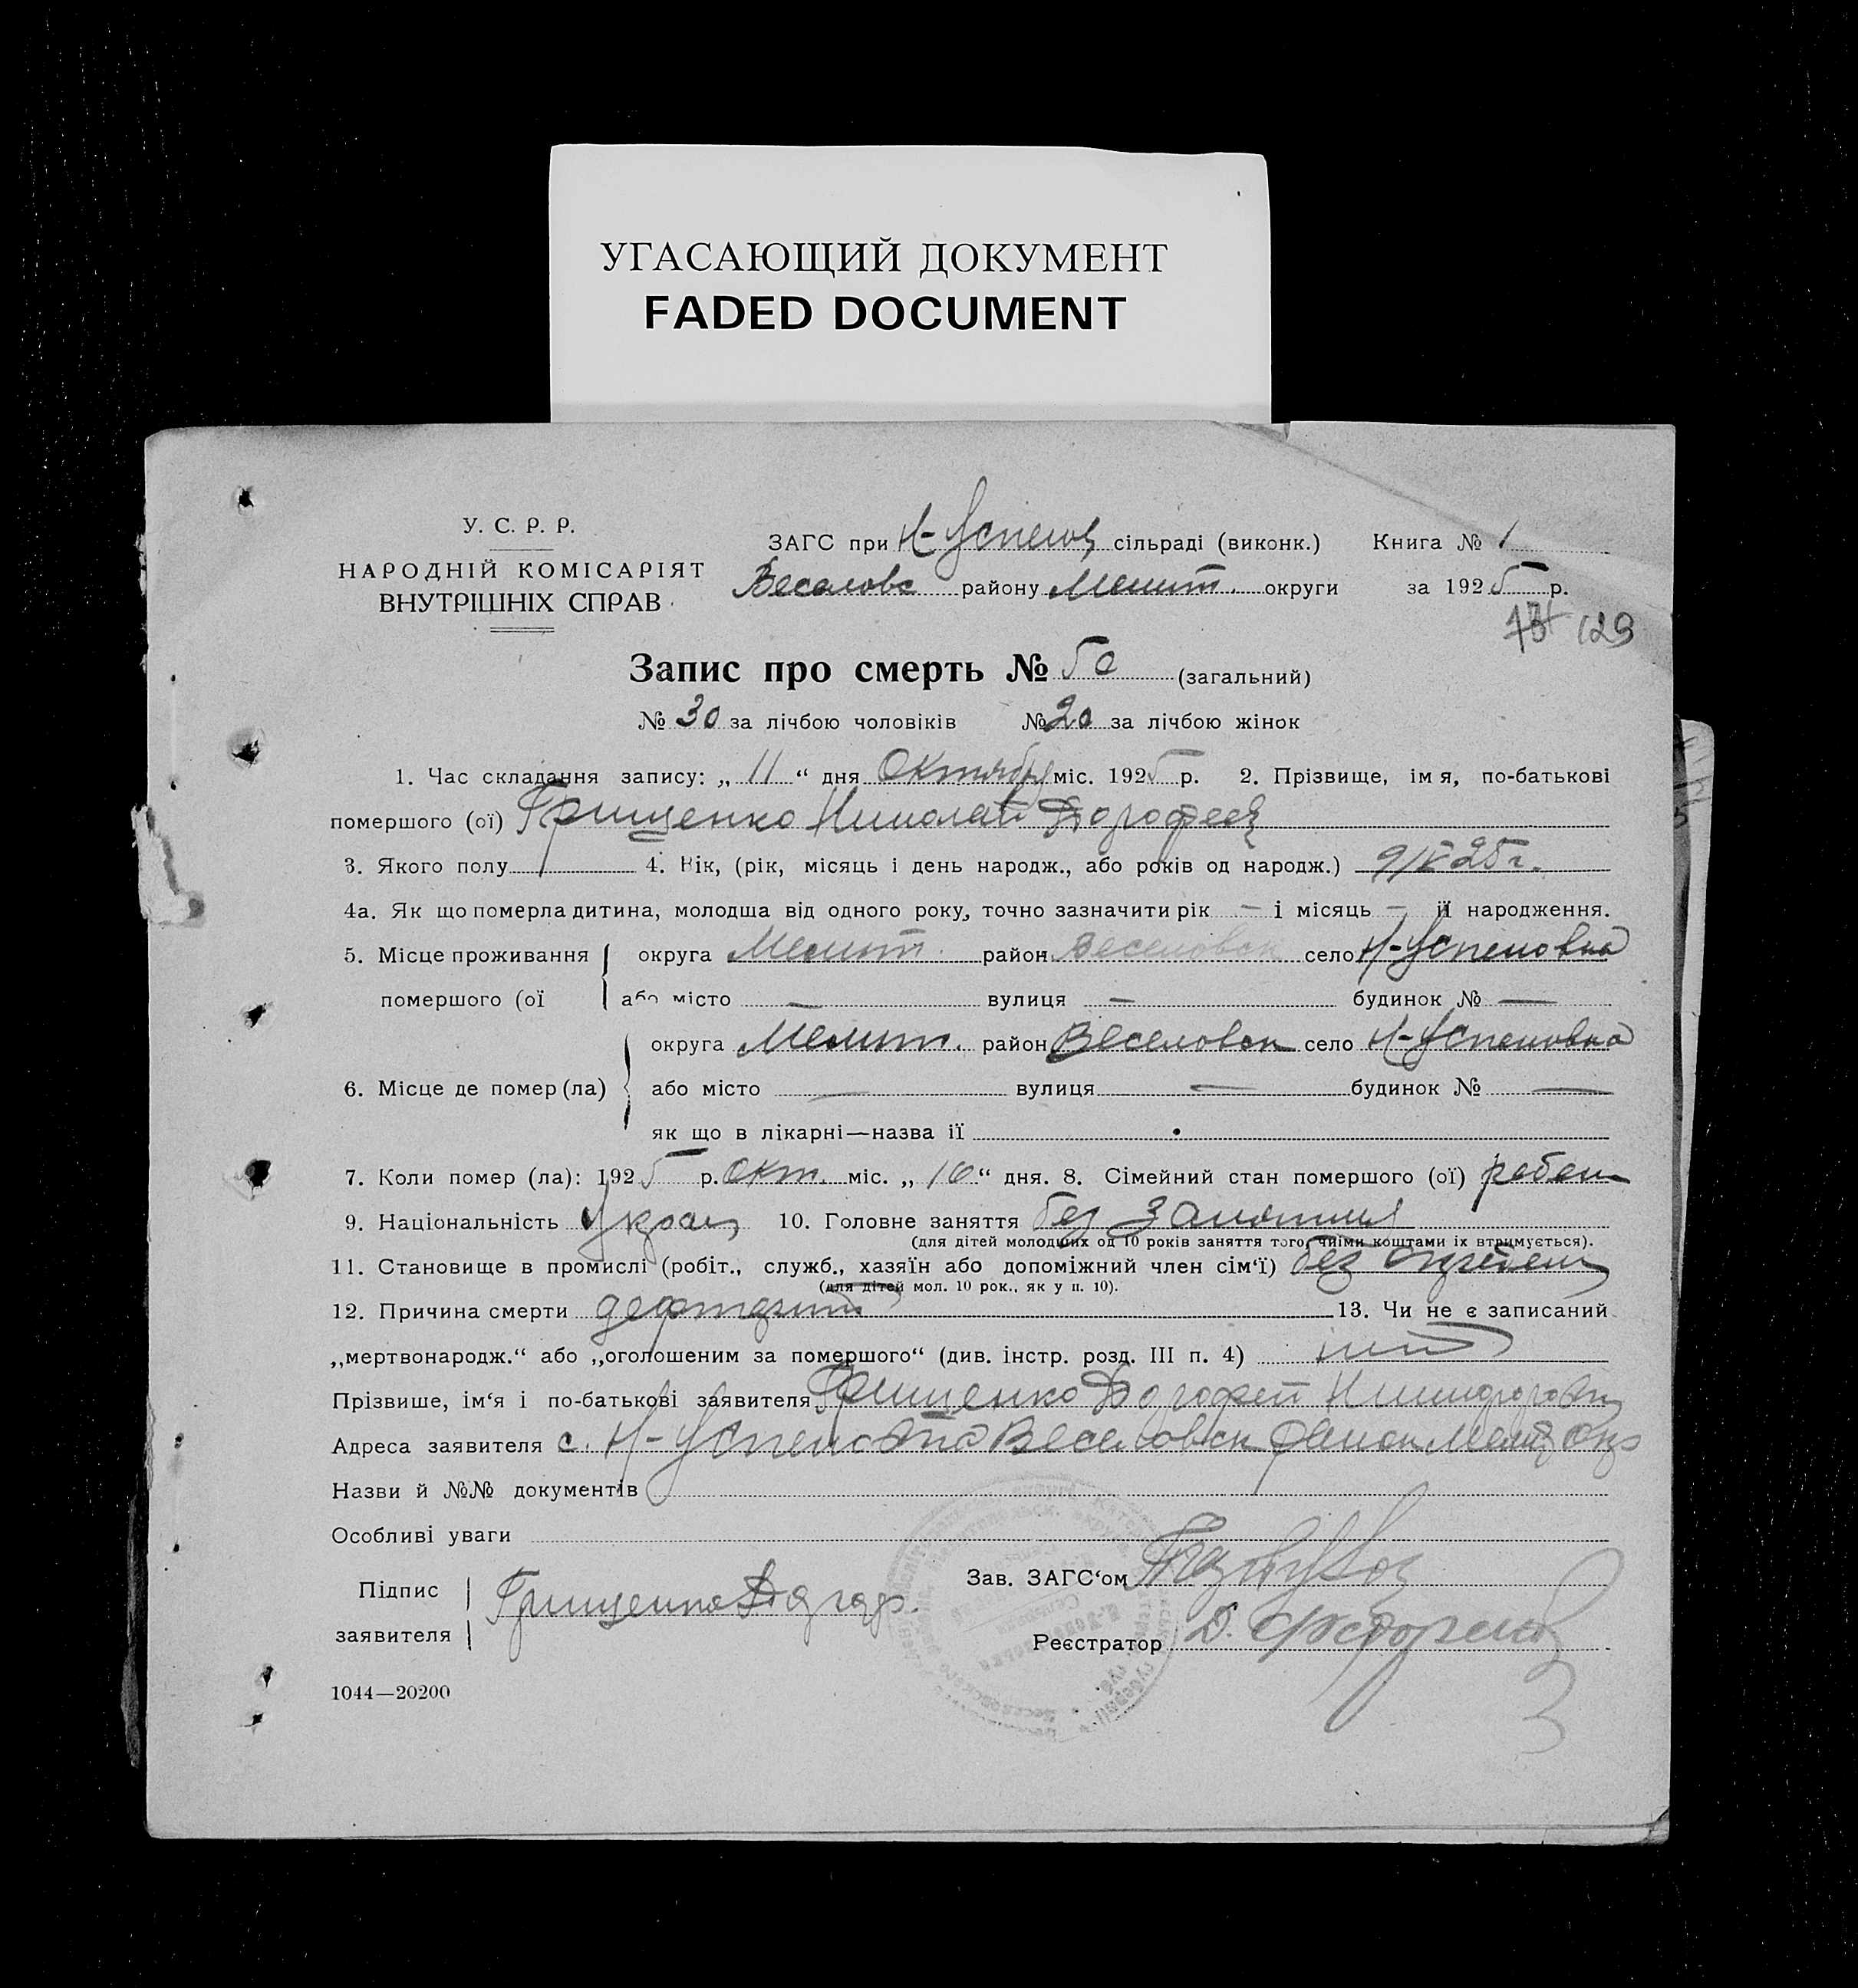 УГАСАЮЩИЙ ДОКУМЕНТ
FADED DOCUMENT
У. С. Р. Р.
НАРОДНІЙ КОМІСАРІЯТ
ВНУТРІШНІХ СПРАВ
ЗАГС при Н-Успенов сільраді (виконк.) Книга № 1
Веселовс району Мелит. округи за 1925 р.
129
Запис про смерть № 50 (загальний)
№ 30 за лічбою чоловіків № 20 за лічбою жінок
1. Час складання запису: „ 11 “ дня Октября міс. 1925 р. 2. Прізвище, імя, по-батькові
помершого (ої) Грищенко Николай Дорофеев
3. Якого полу 4. Вік, (рік, місяць і день народж., або років од народж.) 25 г.
4а. Як що померла дитина, молодша від одного року, точно зазначити рік — і місяць — її народження.
5. Місце проживання округа Мелит. район Веселовск село Н-Успеновка
помершого (ої або місто — вулиця — будинок № —
округа Мелит. район Веселовск село Н-Успеновка
6. Місце де помер (ла) або місто — вулиця — будинок № —
як що в лікарні—назва її
7. Коли помер (ла): 1925 р. Окт. міс. „ 10 “ дня. 8. Сімейний стан помершого (ої) ребен
9. Національність Украин 10. Головне заняття без занятия
(для дітей молодших од 10 років заняття того, чиїми коштами їх втримується).
11. Становище в промислі (робіт., служб., хазяїн або допоміжний член сім‘ї) без
(для дітей мол. 10 рок., як у п. 10).
12. Причина смерти 13. Чи не є записаний
„мертвонародж.“ або „оголошеним за помершого“ (див. інстр. розд. III п. 4) нет
Прізвише, ім‘я і по-батькові заявителя Грищенко Дорофей Никифорович
Адреса заявителя с. Н-Успеновка Веселовск район Мелит окр
Назви й №№ документів
Особливі уваги
Підпис
заявителя Грищенко Дороф.
Зав. ЗАГС‘ом
Реєстратор Д.
1044—20200
3